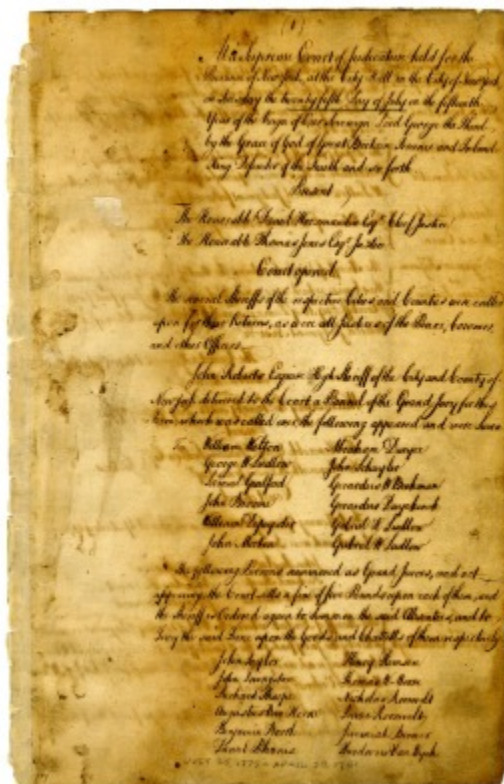 (1)
At a Supreme Court of Judicature held for the
Province of New York, at the City Hall in the City of New York
on Tuesday the twenty fifth Day of July in the fifteenth
Year of the Reign of our Sovereign Lord George the Third
by the Grace of God of Great Britain France and Ireland
King Defender of the Faith and so forth
Present
The Honorable Daniel Horsmanden Esqr. Chief Justice
The Honorable Thomas Jones Esqr. Justice
Court opened
The several Sheriffs of the respective Cities and Counties were called
upon for their Returns, as were all Justices of the Peace, Coroners
and other Officers
John Roberts Esquire High Sheriff of the City and County of
New York delivered to the Court a Pannel of the Grand Jury for this
Term which was called over the following appeared and were sworn
To
William Abraham
George Ludlow John Schuyler
Gerardus Beekman
John Gerardus Duyckinck
Gabriel Ludlow
John Gabriel Ludlow
The following Persons summoned as Grand Jurors, and not
appearing the Court sets a fine of five Pounds upon each of them, and
the Sheriff is Ordered again to summon the said Absentees, and to
levy the said fines upon the Goods and Chattells of them respectively
John Henry Remsen
John Livingston Thomas
Richard Sharpe Nicholas Roosevelt
Augustus Van Horne Isaac Roosevelt
Benjamin Booth Jeremiah
Van Dyck
JULY 25, 1775 - APRIL 28, 1781